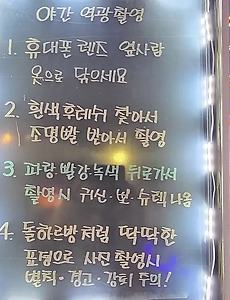 야간 역광 촬영
1. 휴대폰 렌즈 옆사람
옷으로 닦으세요
2. 흰색 후테쉬 찾아서
조명빨 받아서 촬영
3. 파랑 빨강 녹색 뒤로가서
촬영시 귀신·뽀·뉴텍 나옴
4. 돌하르방처럼 딱딱한
표정으로 사진촬영시
벌칙·경고·강퇴 주의!